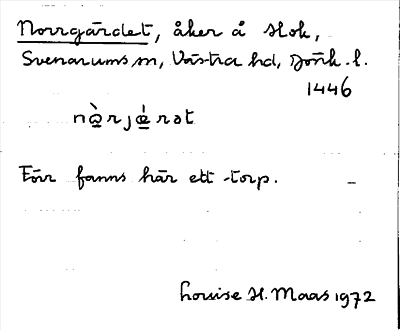 Norrgärdet, åker å Stok,
Svenarums sn, Västra hd, Jönk. l.
1446
nò̲rjæ̲̀rət
Förr fanns här ett torp. –
Louise H. Maas 1972